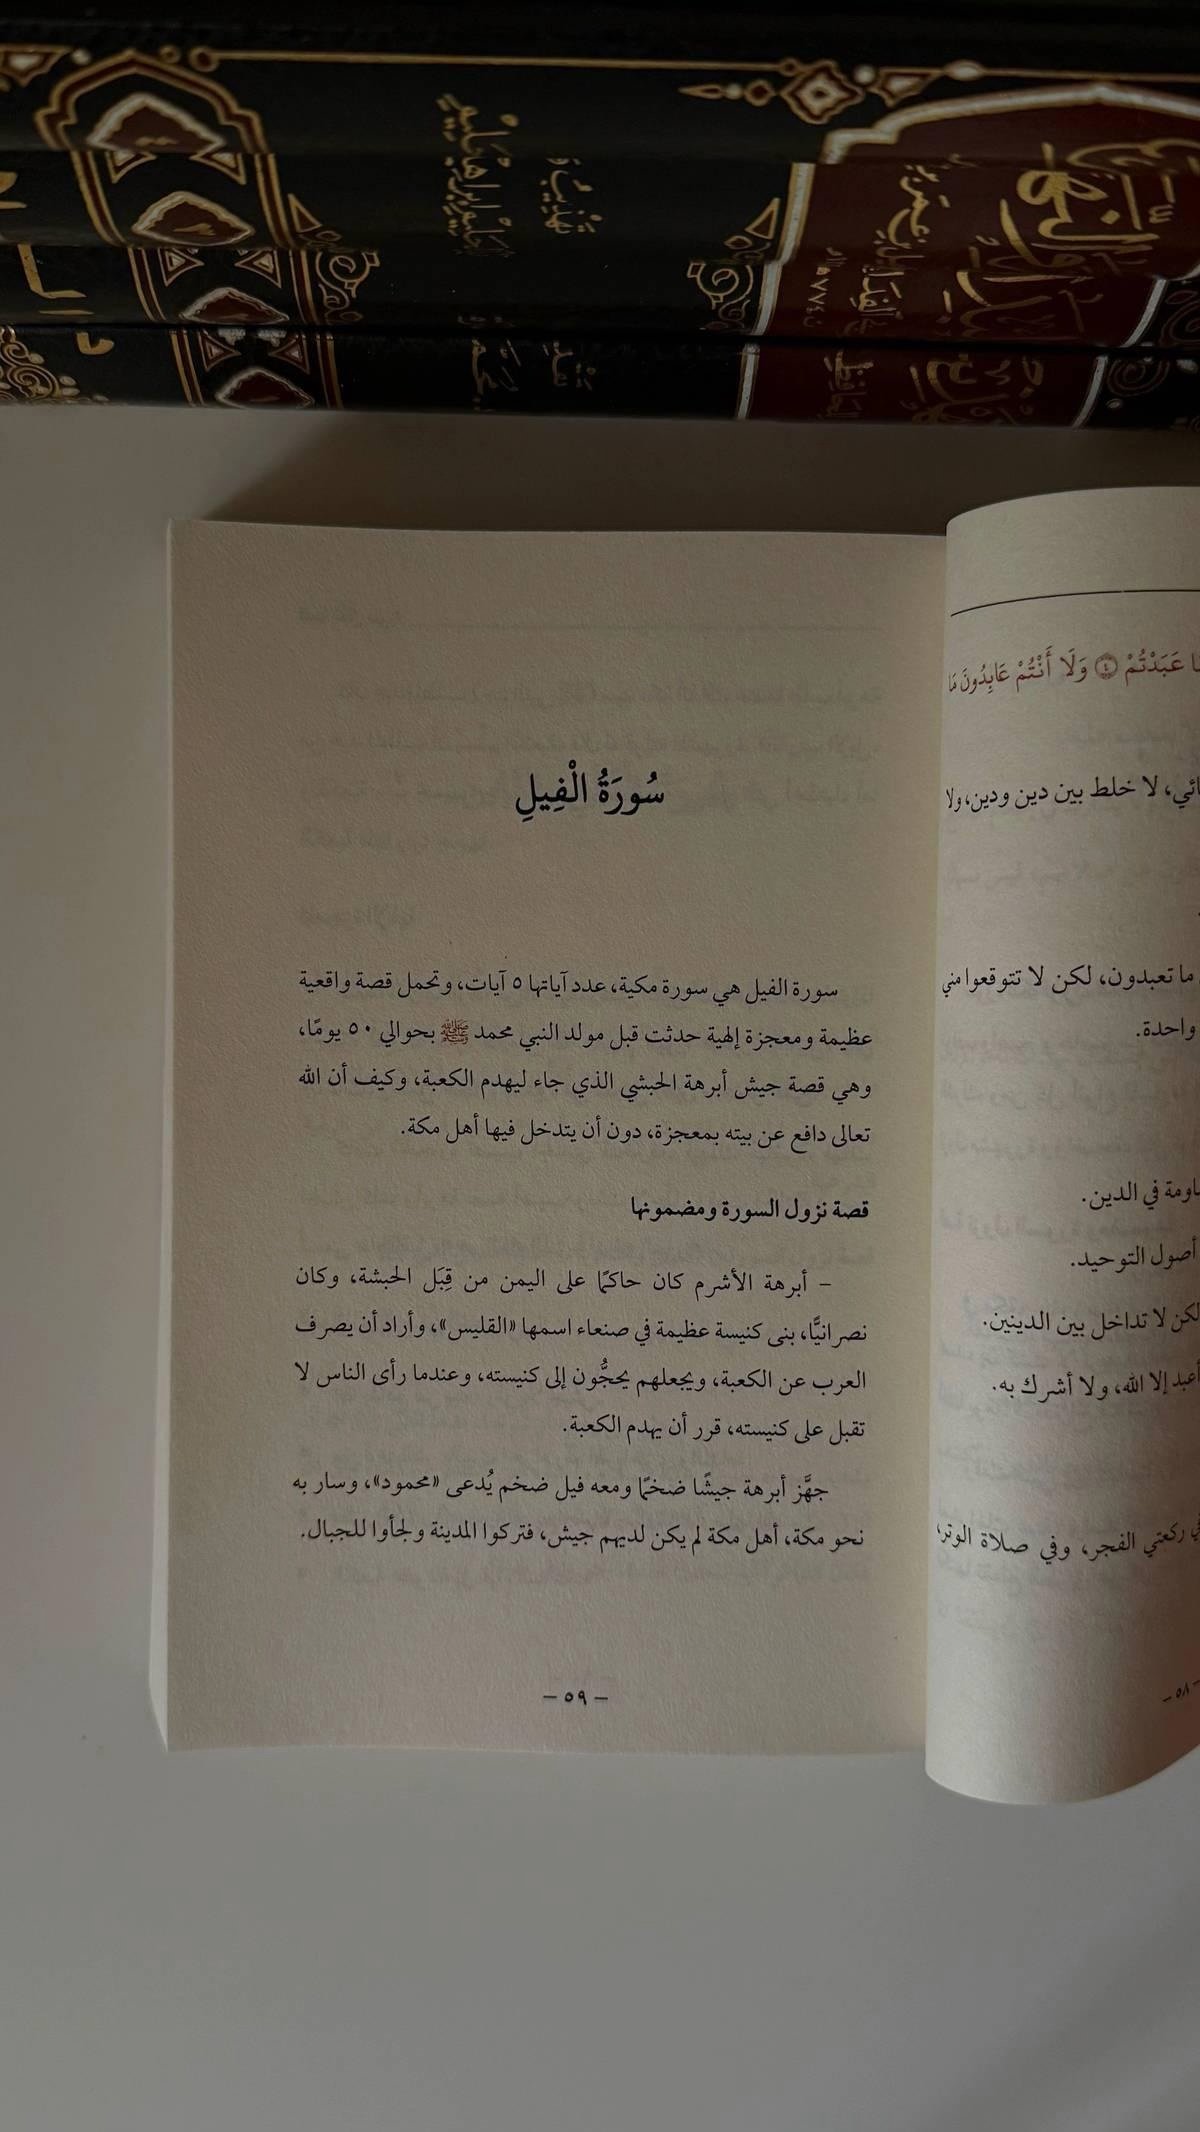 سُورَةُ الْفِيلِ
سورة الفيل هي سورة مكية، عدد آياتها ٥ آيات، وتحمل قصة واقعية
عظيمة ومعجزة إلهية حدثت قبل مولد النبي محمد ﷺ بحوالي ٥٠ يومًا،
وهي قصة جيش أبرهة الحبشي الذي جاء ليهدم الكعبة، وكيف أن الله
تعالى دافع عن بيته بمعجزة، دون أن يتدخل فيها أهل مكة.
قصة نزول السورة ومضمونها
– أبرهة الأشرم كان حاكمًا على اليمن من قِبَل الحبشة، وكان
نصرانيًّا، بنى كنيسة عظيمة في صنعاء اسمها «القليس»، وأراد أن يصرف
العرب عن الكعبة، ويجعلهم يحجُّون إلى كنيسته، وعندما رأى الناس لا
تقبل على كنيسته، قرر أن يهدم الكعبة.
جهَّز أبرهة جيشًا ضخمًا ومعه فيل ضخم يُدعى «محمود»، وسار به
نحو مكة، أهل مكة لم يكن لديهم جيش، فتركوا المدينة ولجأوا للجبال.
– ٥٩ –
عَبَدْتُمْ ٤ وَلَا أَنْتُمْ عَابِدُونَ مَا
لا خلط بين دين ودين، ولا
ما تعبدون، لكن لا تتوقعوا مني
واحدة.
في الدين.
أصول التوحيد.
لكن لا تداخل بين الدينين.
أعبد إلا الله، ولا أشرك به.
ركعتي الفجر، وفي صلاة الوتر،
– ٥٨ –